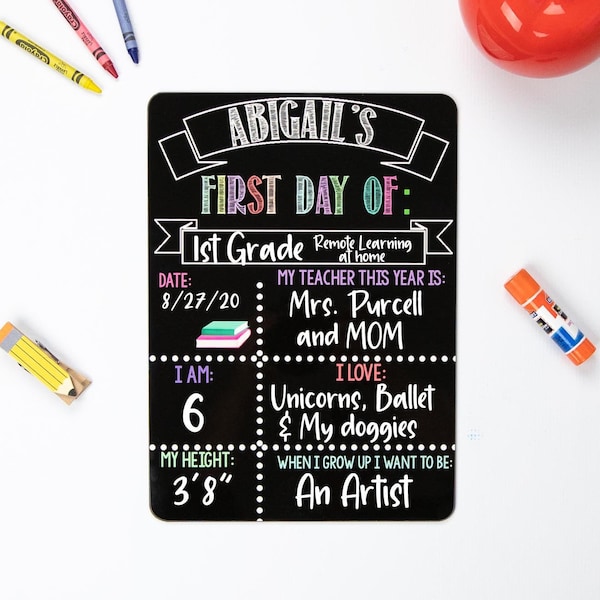 ABIGAIL'S
FIRST DAY OF:
1st Grade Remote Learning
at home
DATE:
8/27/20
MY TEACHER THIS YEAR IS:
Mrs. Purcell
and MOM
I AM:
6
I LOVE:
Unicorns, Ballet
& My doggies
MY HEIGHT:
3'8"
WHEN I GROW UP I WANT TO BE:
An Artist